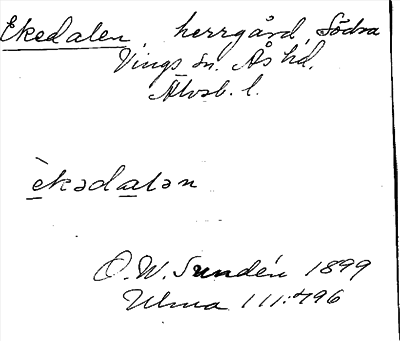 Ekedalen, herrgård, Södra
Vings sn. Ås hd.
Älvsb. l.
èkədalən
O.W. Sundén 1899
Ulma 111:496